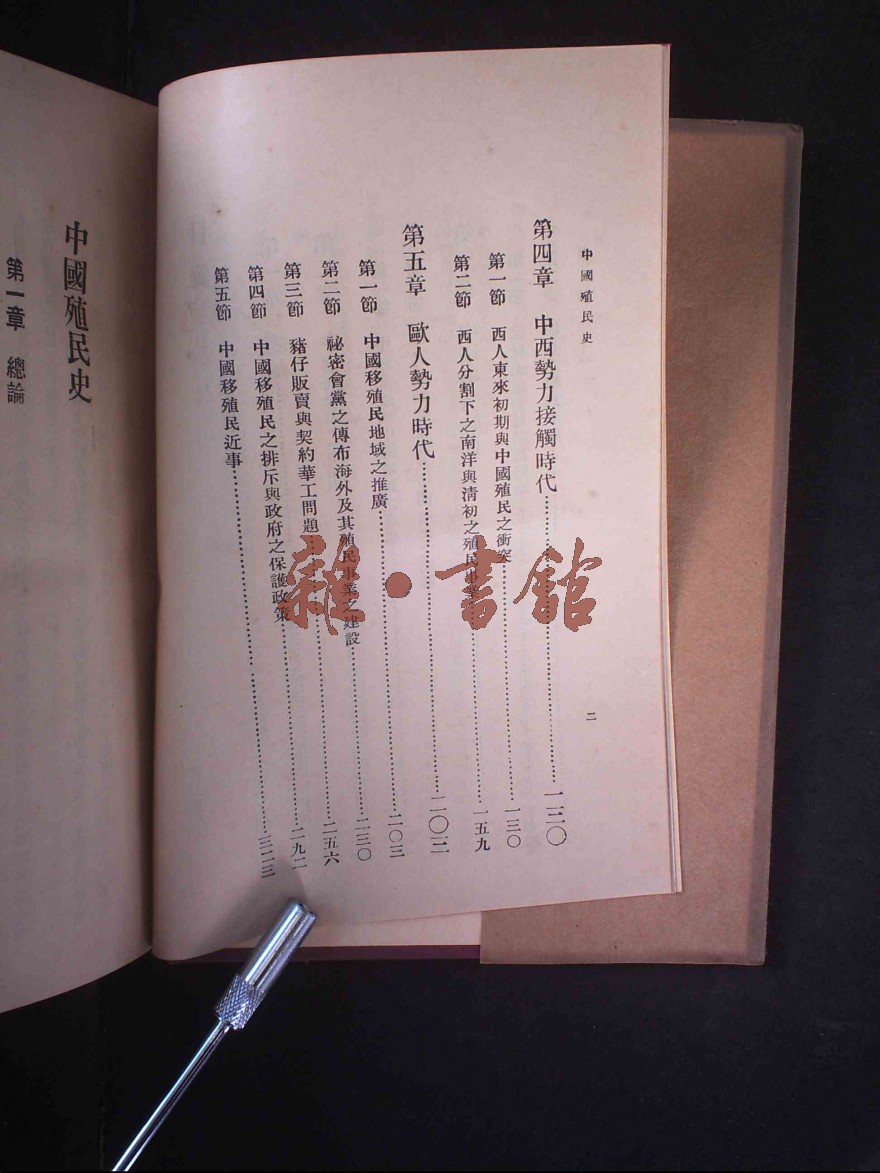 中國殖民史
二
第四章 中西勢力接觸時代……一三〇
第一節 西人東來初期與中國殖民之衝突……一三〇
第二節 西人分割下之南洋與清初之殖民事業……一五九
第五章 歐人勢力時代……二〇三
第一節 中國移殖民地域之推廣……二〇三
第二節 祕密會黨之傳布海外及其殖民事業之建設……二三〇
第三節 豬仔販賣與契約華工問題……二五六
第四節 中國移殖民之排斥與政府之保護政策……二九二
第五節 中國移殖民近事……三一三
中國殖民史
第一章 總論
雜·書館